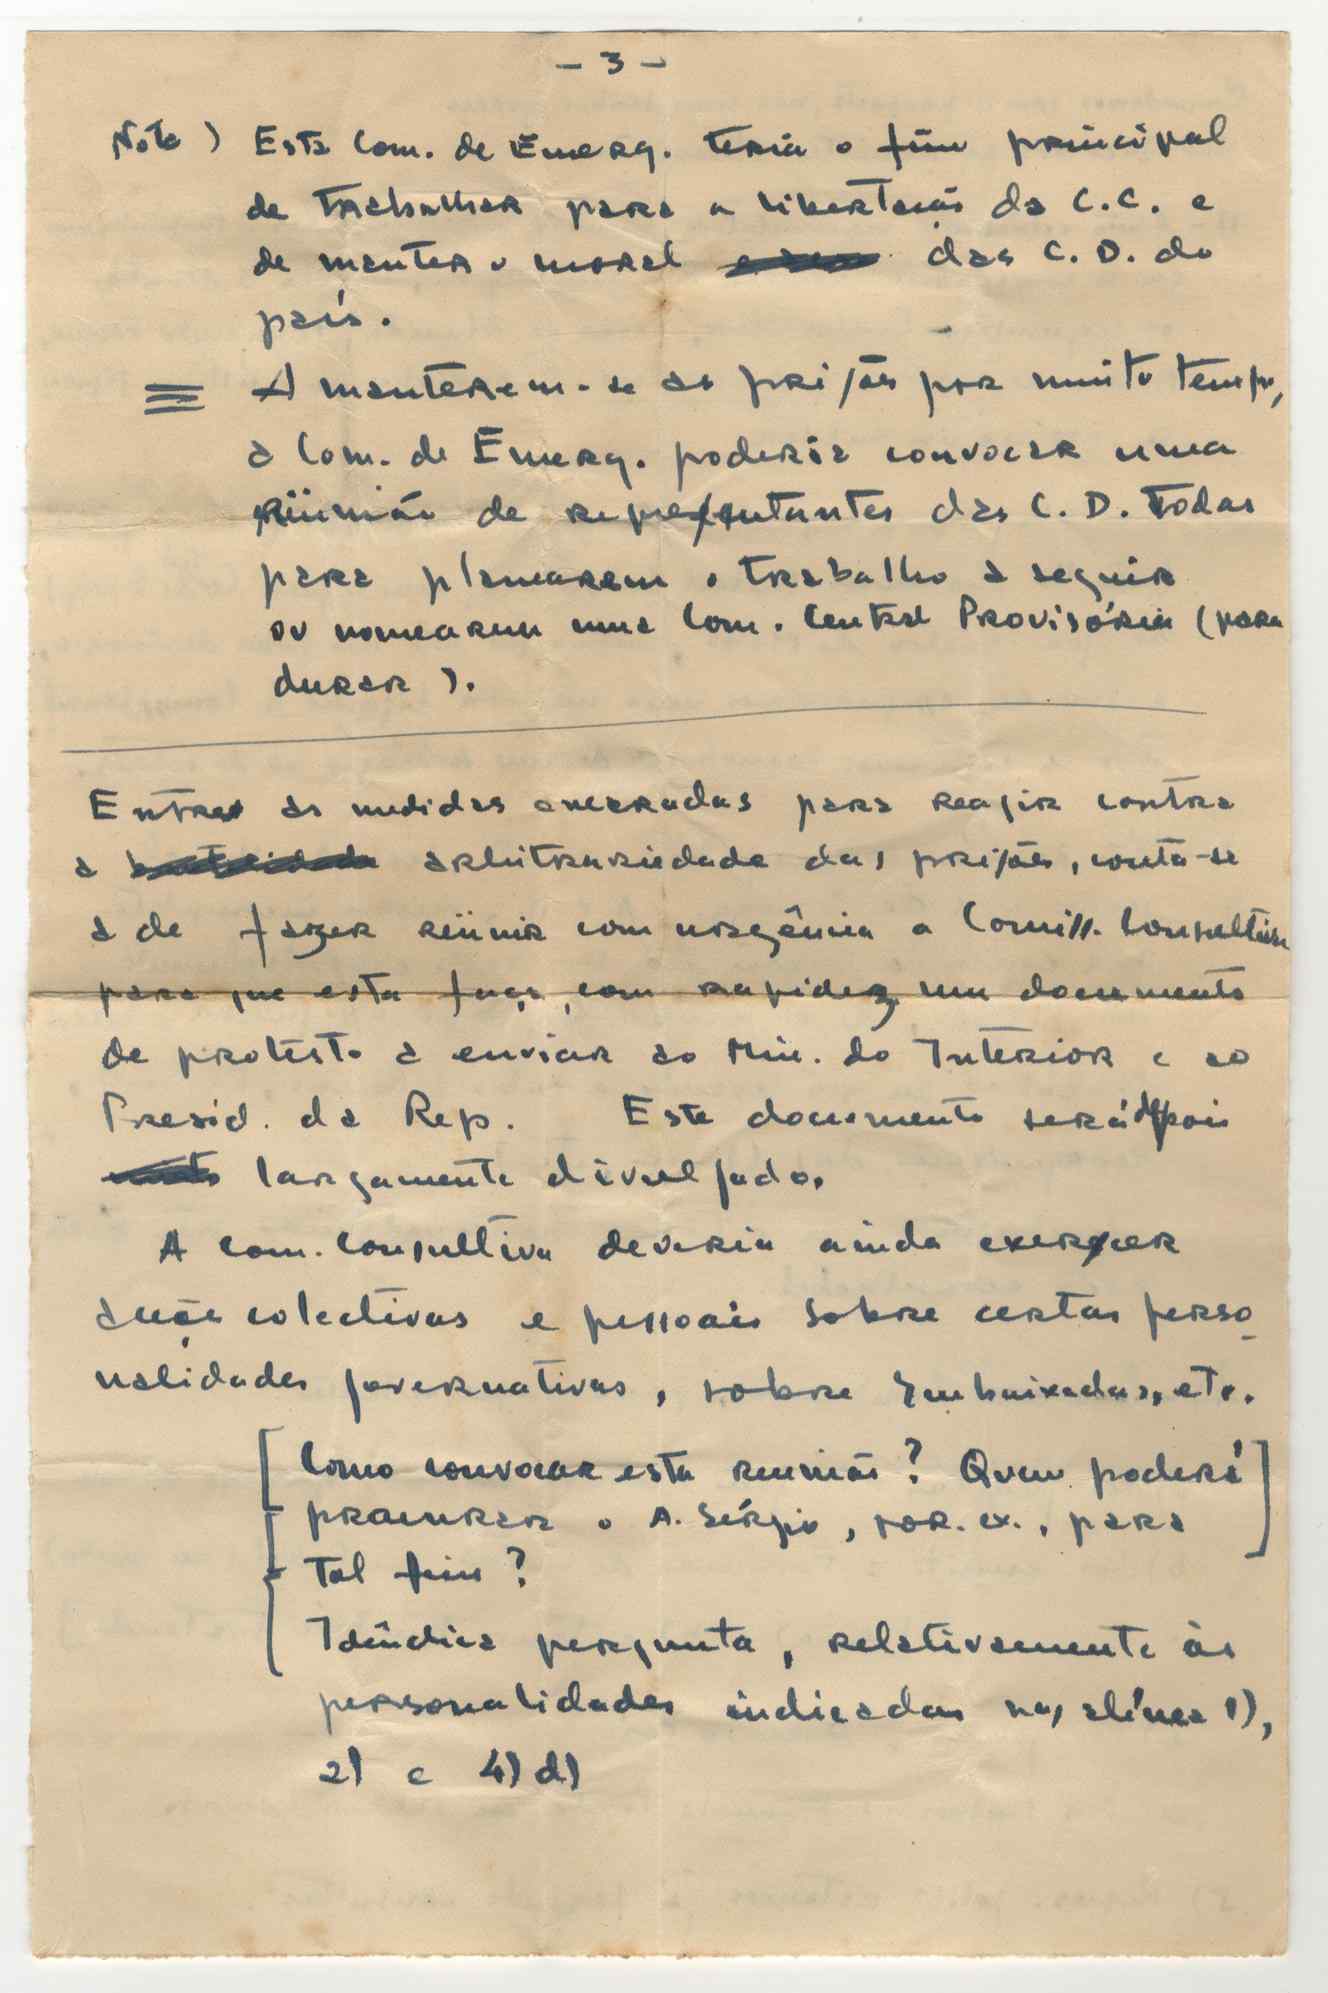 - 3 -
Nota) Esta Com. de Emerg. teria o fim principal
de trabalhar para a libertação da C.C. e
de manter o moral das C. D. do
país.
A manterem-se as prisões por muito tempo,
a Com. de Emerg. poderia convocar uma
reünião de representantes das C. D. todas
para planearem o trabalho a seguir
ou nomearem uma Com. Central Provisória (para
durar).
Entre as medidas encaradas para reagir contra
a arbitrariedade das prisões, conta-se
a de fazer reünir com urgência a Comiss. Consultiva
para que esta faça, com rapidez, um documento
de protesto a enviar ao Min. do Interior e ao
Presid. da Rep. Este documento será depois
largamente divulgado.
A Com. Consultiva deveria ainda exercer
acções colectivas e pessoais sobre certas perso-
nalidades governativas, sobre Embaixadas, etc.
[Como convocar esta reunião? Quem poderá
procurar o A. Sérgio, por. ex., para
tal fim?]
Idêndica pergunta, relativamente às
personalidades indicadas nas alínea 1),
2) e 4) d)